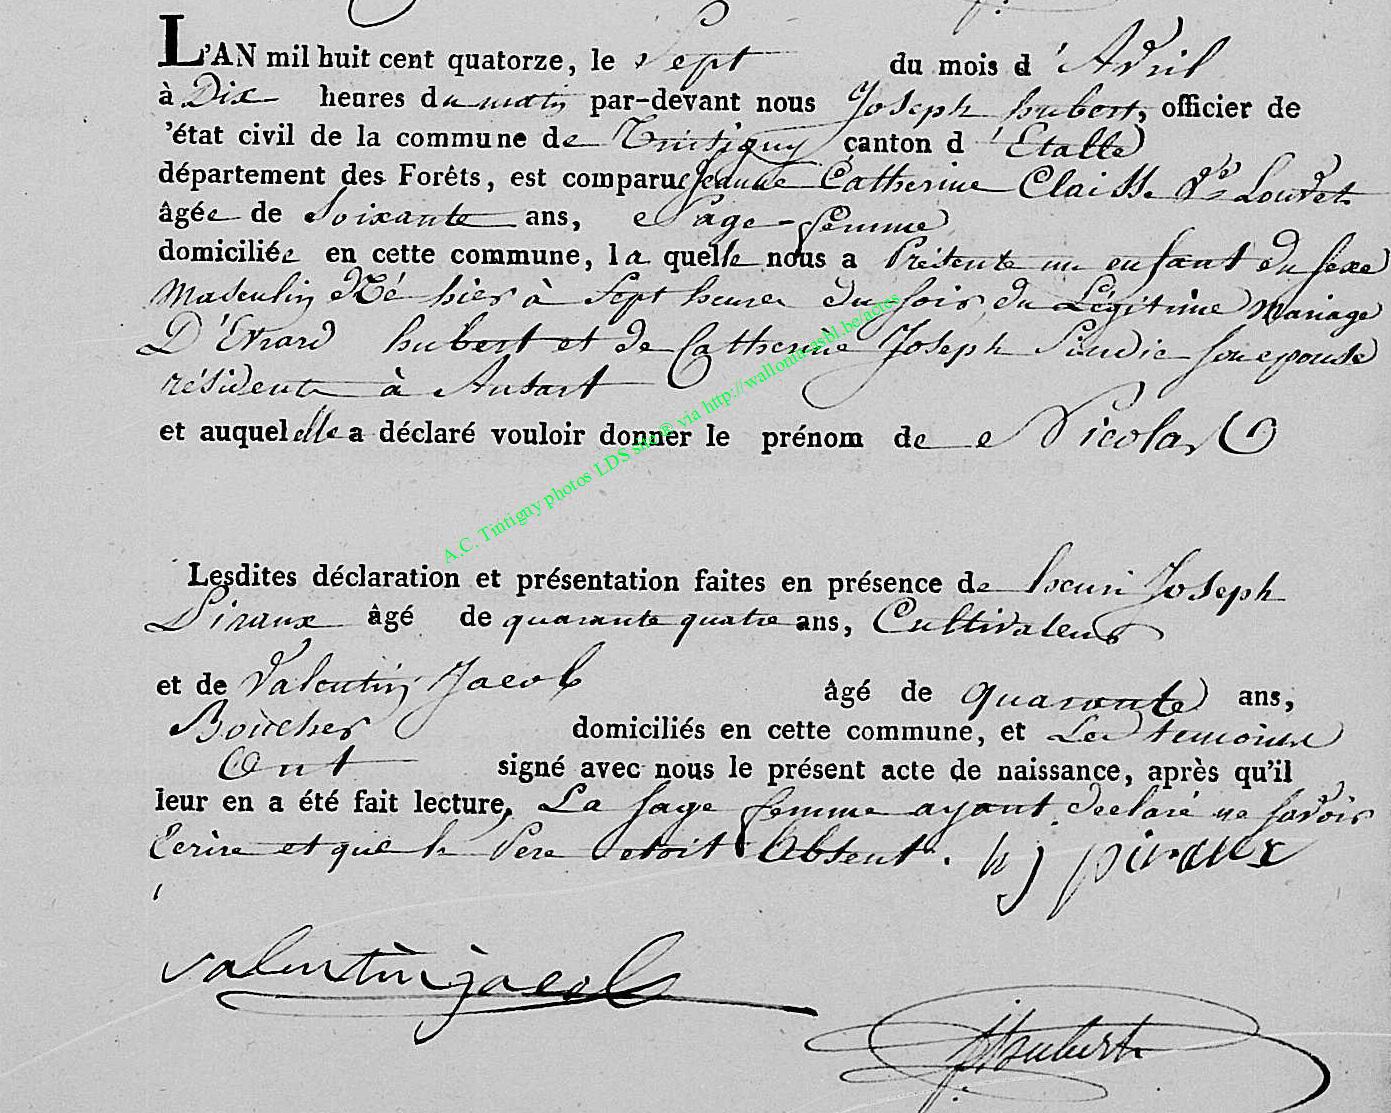 L'AN mil huit cent quatorze, le Sept du mois d'Avril
à Dix heures du matin par-devant nous Joseph hubert, officier de
l'état civil de la commune de Tintigny canton d'Etalle
département des Forêts, est comparue Jeanne Catherine Claisse Ve Louvet
âgée de Soixante ans, Sage-femme
domiciliée en cette commune, la quelle nous a Présenté un enfant du sexe
Masculin Né hier à Sept heures du soir, du Légitime Mariage
D'Evrard hubert et de Catherine Joseph son epouse
résident à Ansart
et auquel elle a déclaré vouloir donner le prénom de Nicolas
A.C. Tintigny photos LDS site ® via http://wallonia-asbl.be/actes
Lesdites déclaration et présentation faites en présence de henri Joseph
Piraux âgé de quarante quatre ans, Cultivateur
et de Valentin Jacob âgé de quarante ans,
Boucher domiciliés en cette commune, et Les temoins
Ont signé avec nous le présent acte de naissance, après qu'il
leur en a été fait lecture, La sage femme ayant declaré ne savoir
Ecrire et que le Pere etoit Absent. h j piraux
valentin jacob
J hubert